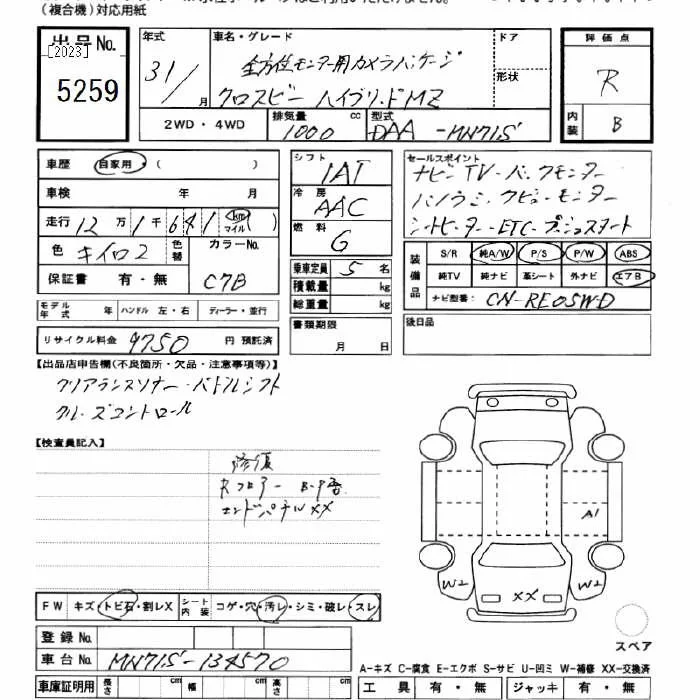 (複合機)対応用紙
出品No.
[2023]
5259
年式
31/
月
車名・グレード
全方位モニター用カメラパッケージ
クロスビー ハイブリッドMZ
ドア
形状
2WD・4WD
排気量
1000
cc
型式
DAA-MN71S
評価点
R
内装
B
車歴 自家用・( )
車検 年 月
走行 12万1千641 km マイル( )
色 キイロ2 色替
カラーNo.
C7B
保証書 有・無
モデル年式 年 ハンドル 左・右 ディーラー・並行
リサイクル料金 9750 円 預託済
シフト
IAT
冷房
AAC
燃料
G
乗車定員 5 名
積載量 kg
総重量 kg
書類期限
月 日
セールスポイント
ナビ・TV・バックモニター
シートヒーター・ETC・プッシュスタート
装備品
S/R 純A/W P/S P/W ABS
純TV 純ナビ 革シート 外ナビ エアB
ナビ型番: CN-RE05WD
後日品
【出品店申告欄(不良箇所・欠品・注意事項等)】
クリアランスソナー・パドルシフト
クルーズコントロール
【検査員記入】
修復
Rフロアー
エンドパネルXX
A1
W2
W2
XX
FW キズ・トビ石・割レX
シート内装 コゲ・穴・汚レ・シミ・破レ・スレ
登録No.
車台No. MN71S-134570
車庫証明用 長さ cm 幅 cm 高さ cm
スペア
A-キズ C-腐食 E-エクボ S-サビ U-凹ミ W-補修 XX-交換済
工具 有・無 ジャッキ 有・無